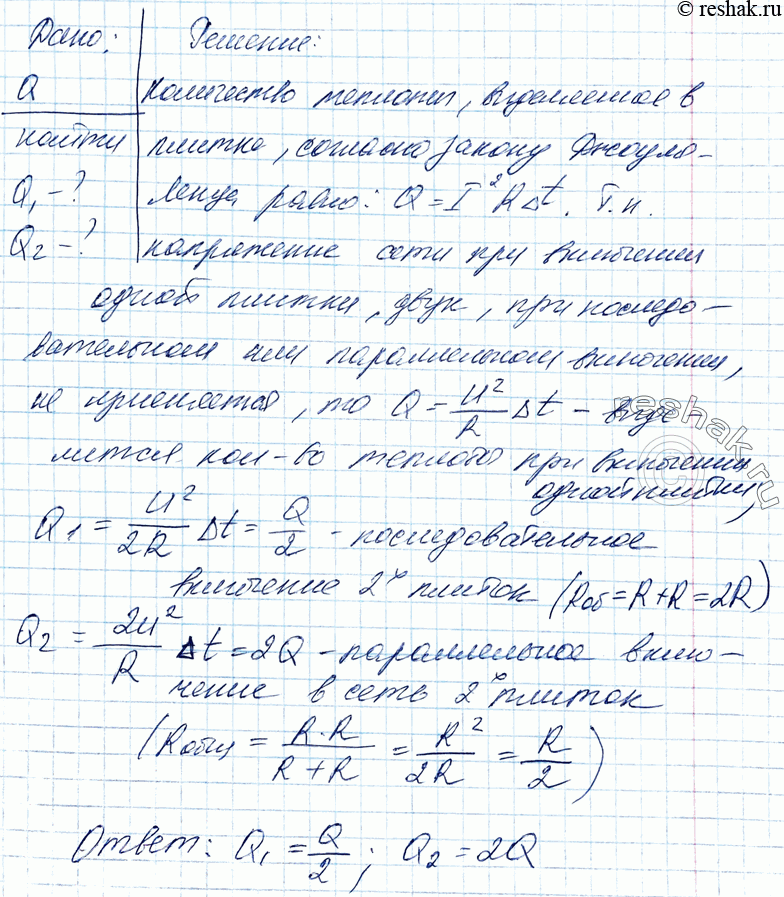 © reshak.ru
Дано: Решение:
Q Количество теплоты, выделяемое в
найти плитке, согласно закону Джоуля-
Q₁ - ? Ленца равно: Q = I²RΔt. Т.к.
Q₂ - ? напряжение сети при включении
одной плитки, двух, при последо-
вательном или параллельном включении,
не изменяется, то Q = U²/R Δt - выде
лится кол-во теплоты при включении
одной плитки;
Q₁ = U²/2R Δt = Q/2 - последовательное
включение 2ˣ плиток (Rоб = R + R = 2R)
Q₂ = 2U²/R Δt = 2Q - параллельное вклю-
чение в сеть 2ˣ плиток
(Rобщ = R·R/R+R = R²/2R = R/2)
Ответ: Q₁ = Q/2; Q₂ = 2Q
reshak.ru